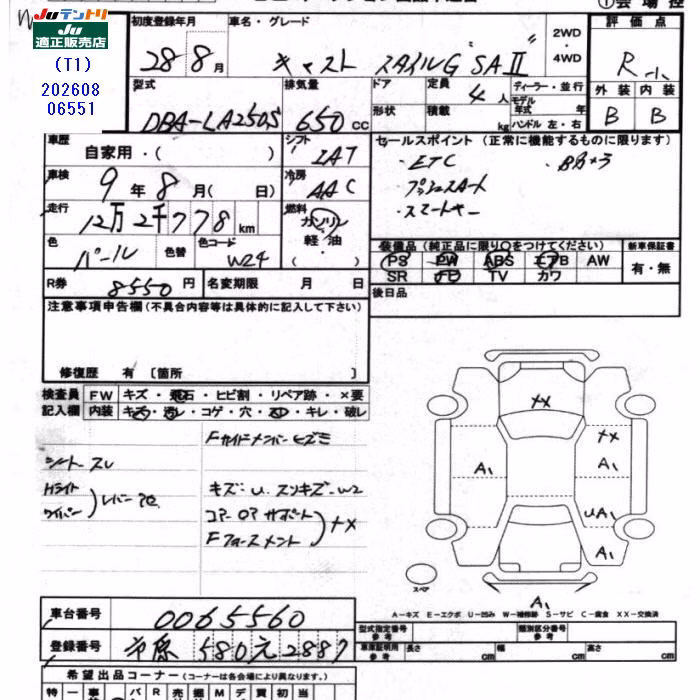 JUテントリ
JU
適正販売店
(T1)
202608
06551
初度登録年月
車名・グレード
評価点
28年8月
キャスト スタイルG "SAⅡ"
2WD
・
4WD
R
外装 内装
B B
型式
排気量
ドア
定員
ディーラー・並行
DBA-LA250S
650cc
4人
モデル年式 年
形状
積載
kg
ハンドル 左・右
車歴
自家用・( )
シフト
IAT
セールスポイント (正常に機能するものに限ります)
・ETC
・プッシュスタート
・スマートキー
車検
9年8月( 日)
冷房
AAC
走行
12万2千778km
燃料
ガソリン
軽・油
( )
色
パール
色替
色コード
W24
装備品(純正品に限り○をつけてください)
新車保証書
PS PW ABS エアB AW
SR TV カワ
有・無
R券
8550円
名変期限 月 日
後日品
注意事項申告欄(不具合内容等は具体的に記入して下さい)
修復歴 有 〔箇所 〕
検査員
記入欄
FW キズ・飛石・ヒビ割・リペア跡・×要
内装 キズ・汚レ・コゲ・穴・・キレ・破レ
シートスレ
Hライト
ワイパー
キズ・U. スリキズ・W2
コアーロアサポート
XX
XX
A1
A1
UA1
A1
A1
スペア
A-キズ E-エクボ U-凹み W-補修跡 S-サビ C-腐食 XX-交換済
車台番号
0065560
登録番号
市原 580 元 2887
型式指定番号
参考
類別区分番号
参考
車庫証明用
参考
長さ cm
幅 cm
高さ cm
希望出品コーナー(コーナーは各会場により異なります。)